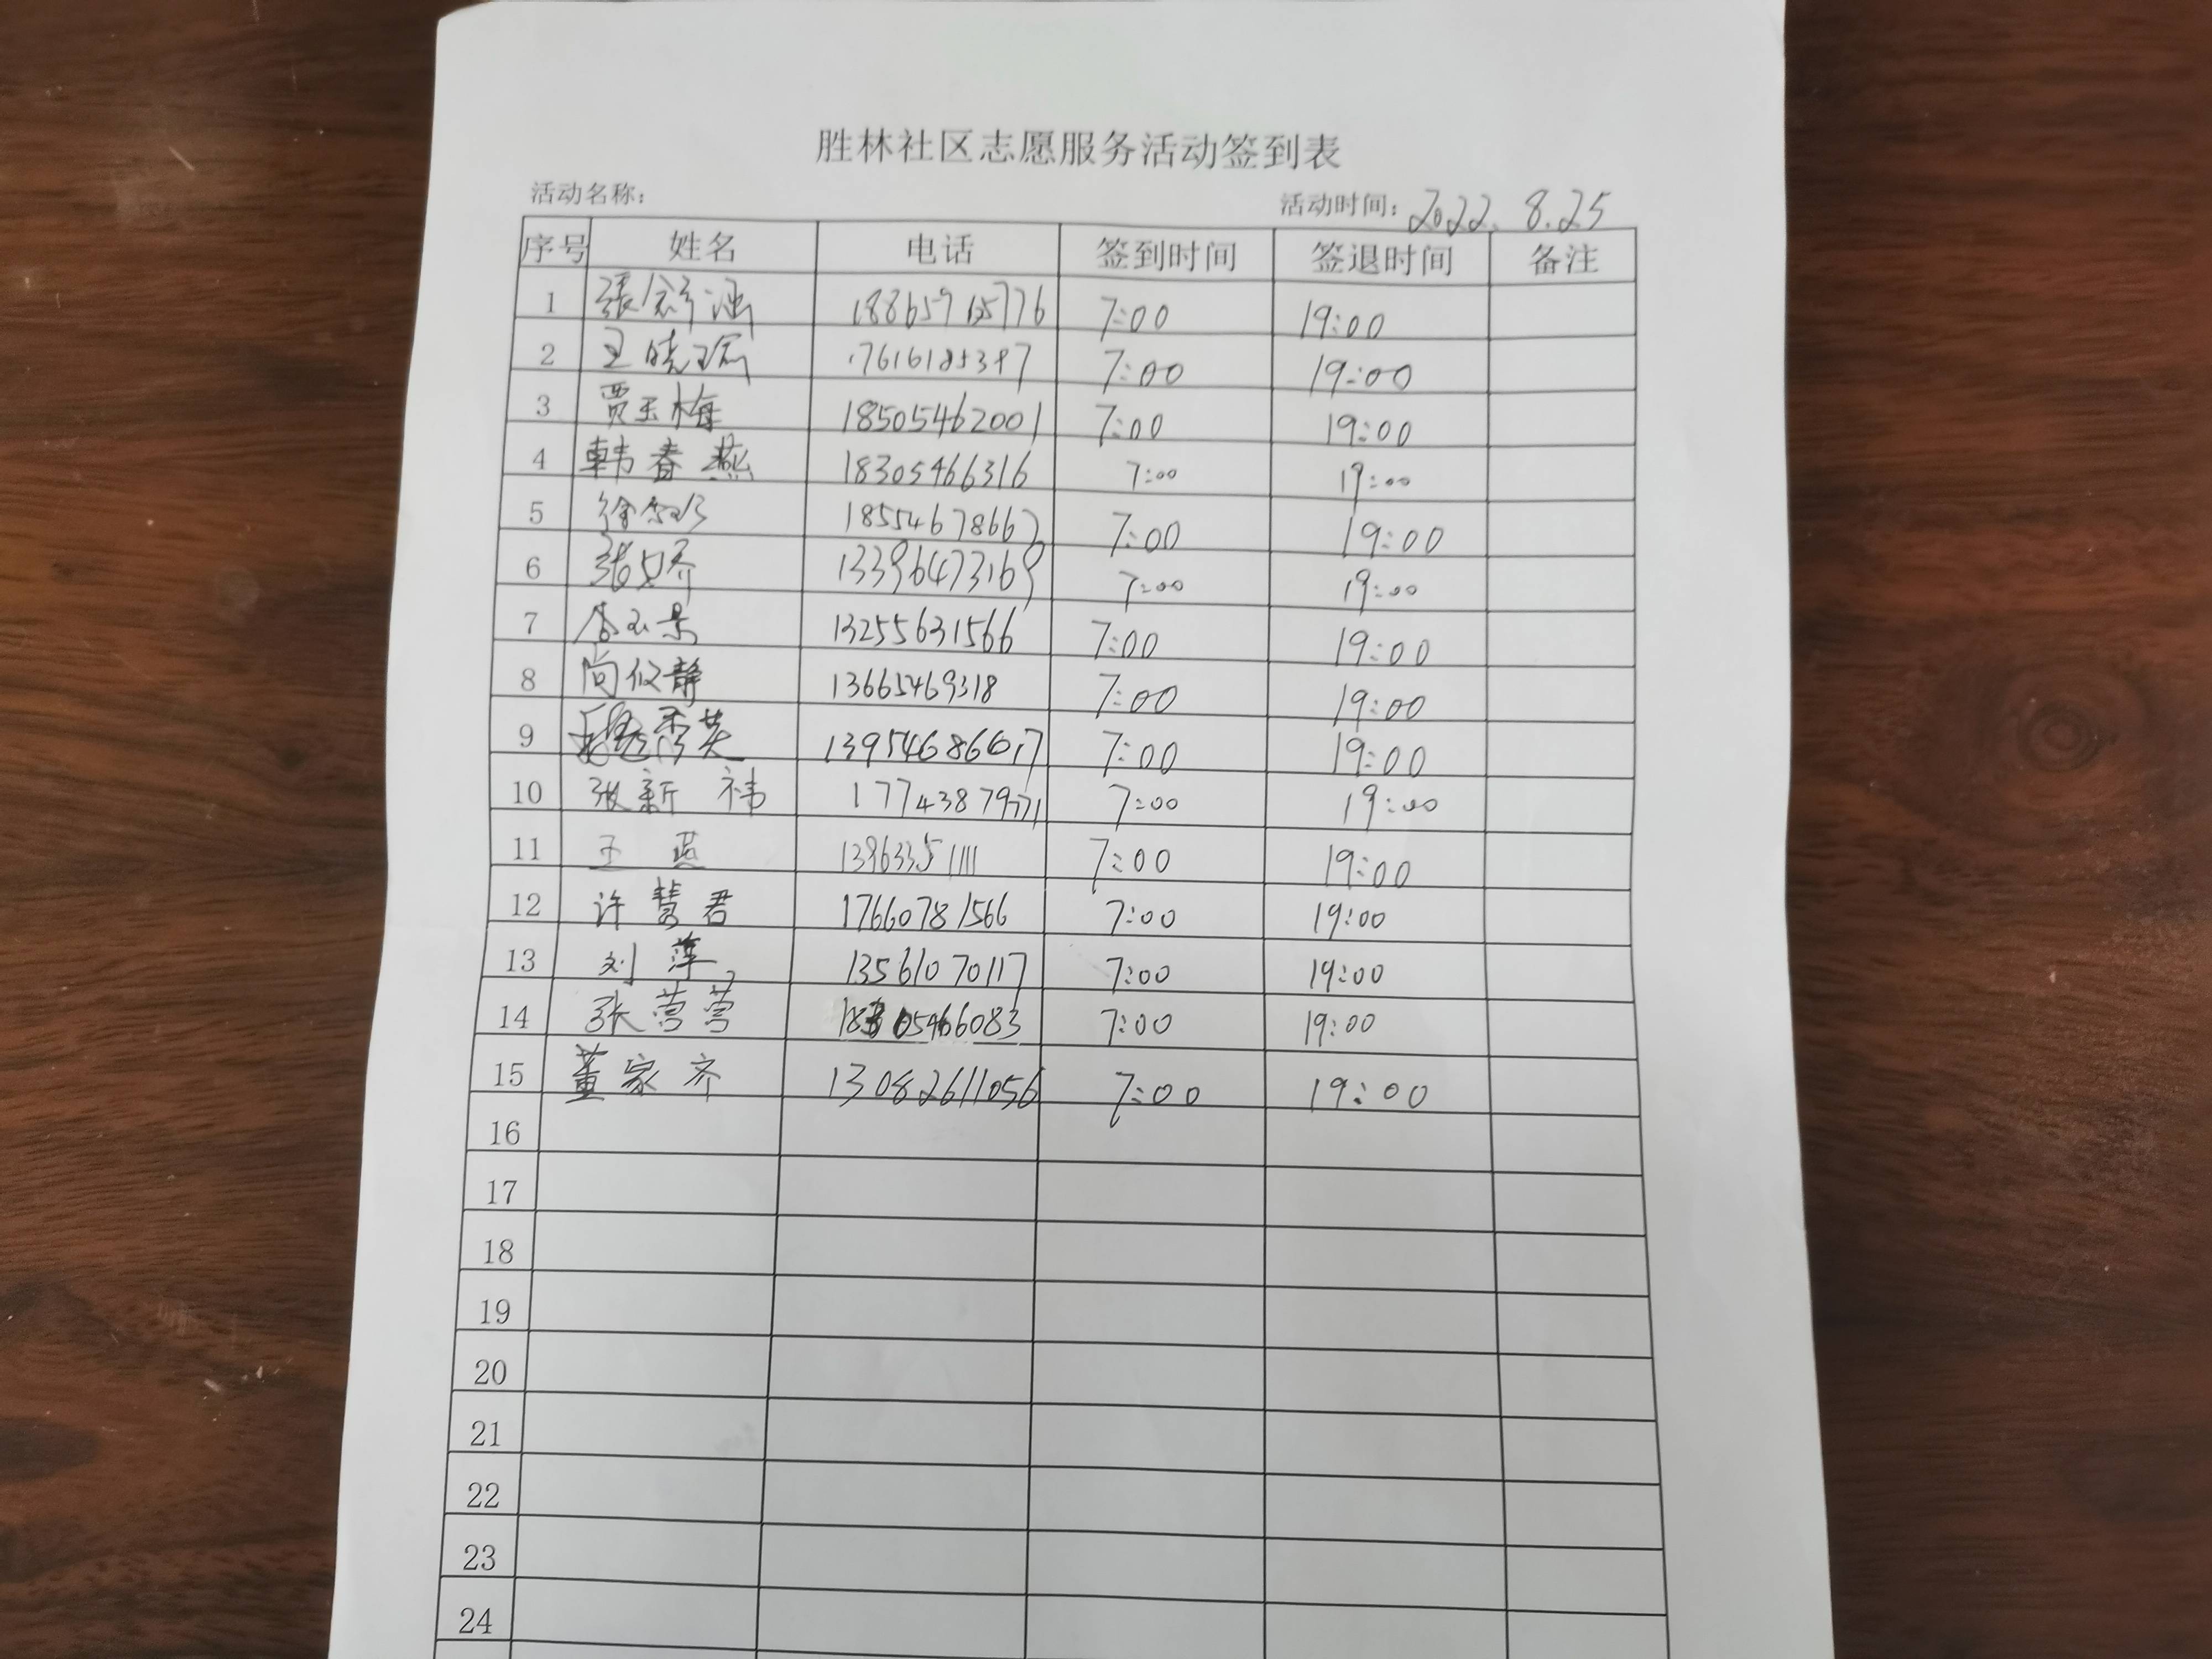 胜林社区志愿服务活动签到表
活动名称: 活动时间: 2022. 8.25
序号 姓名 电话 签到时间 签退时间 备注
1 7:00 19:00
2 7:00 19:00
3 贾玉梅 18505462001 7:00 19:00
4 韩春燕 18305466316 7:00 19:00
5 7:00 19:00
6 13396473169 7:00 19:00
7 13255631566 7:00 19:00
8 13665469318 7:00 19:00
9 13954686617 7:00 19:00
10 张新祎 7:00 19:00
11 王燕 7:00 19:00
12 许慧君 17660781566 7:00 19:00
13 刘萍 13561070117 7:00 19:00
14 张莺莺 18305466083 7:00 19:00
15 董家齐 13082611056 7:00 19:00
16
17
18
19
20
21
22
23
24